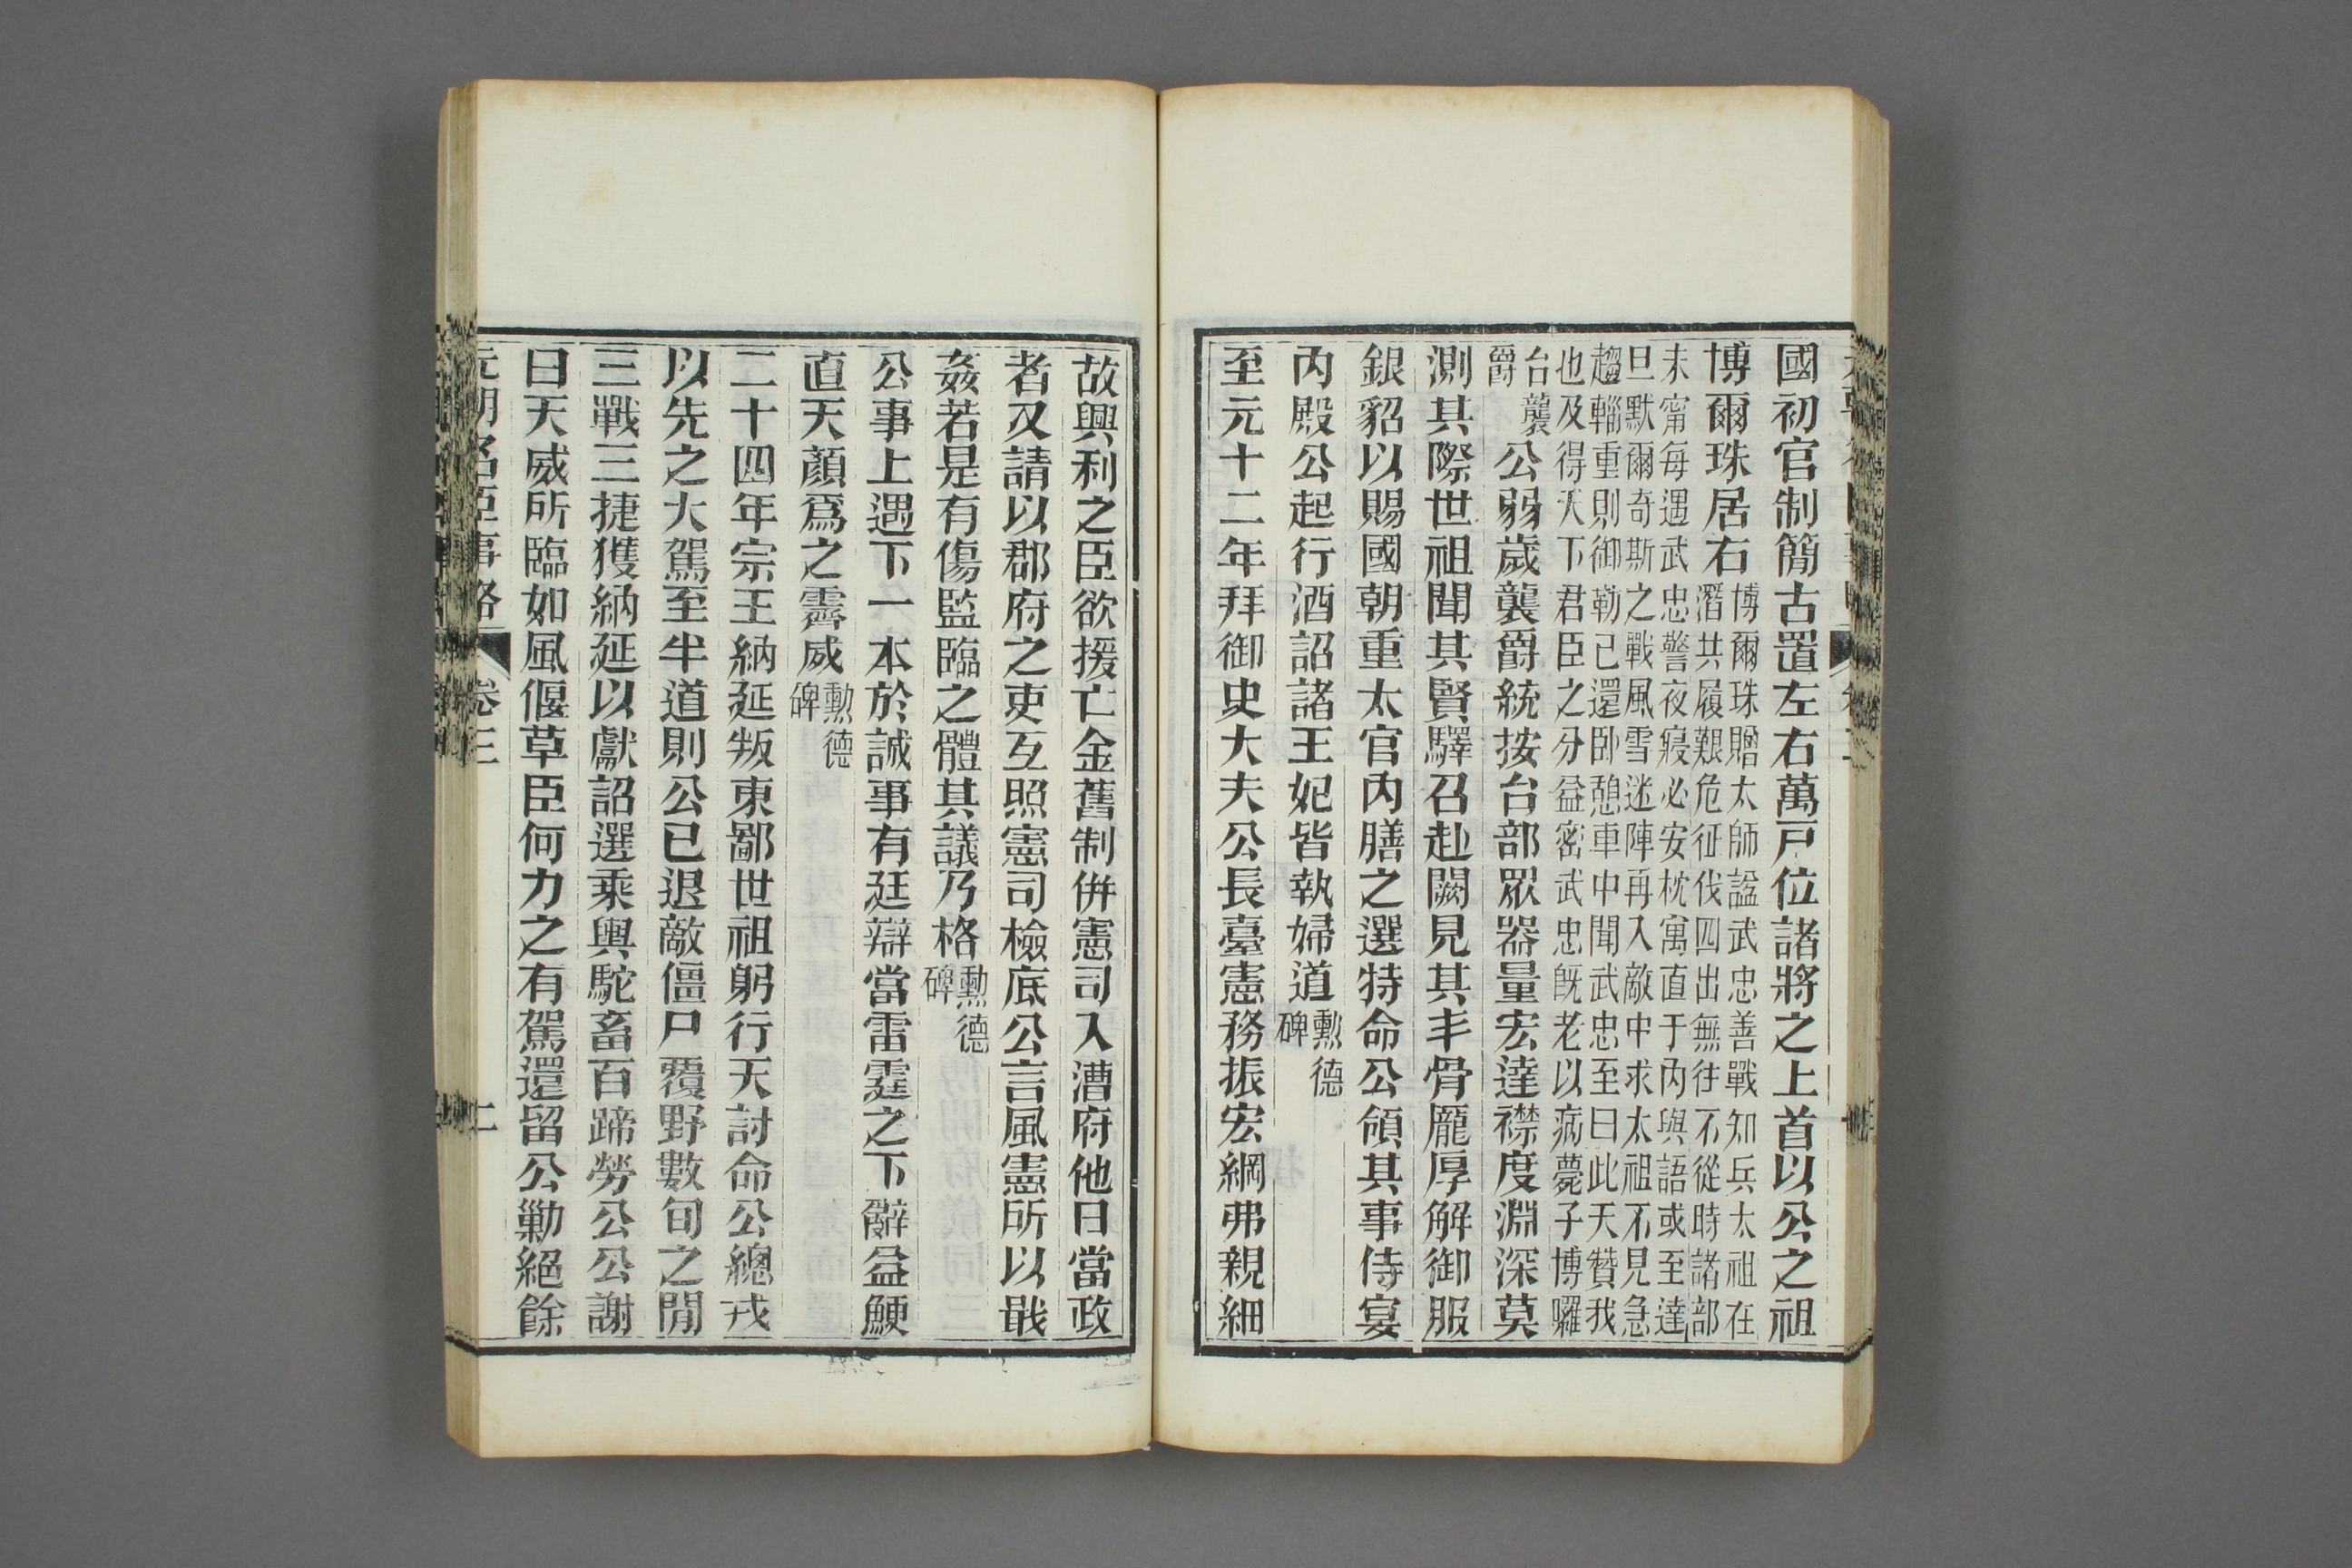 國初官制簡古置左右萬戸位諸將之上首以公之祖
博爾珠居右博爾珠贈太師諡武忠善戰知兵太祖在
潛共履艱危征伐四出無往不從時諸部
未甯每遇武忠警夜寢必安枕寓直于內與語或至達
旦默爾奇斯之戰風雪迷陣再入敵中求太祖不見急
趨輜重則御勒已還卧憩車中聞武忠至曰此天贊我
也及得天下君臣之分益密武忠旣老以病薨子博囉
台襲
爵公弱歲襲爵統按台部眾器量宏達襟度淵深莫
測其際世祖聞其賢驛召赴闕見其丰骨龐厚解御服
銀貂以賜國朝重太官內膳之選特命公領其事侍宴
內殿公起行酒詔諸王妃皆執婦道勳德
碑
至元十二年拜御史大夫公長臺憲務振宏綱弗親細
故興利之臣欲援亡金舊制併憲司入漕府他日當政
者又請以郡府之吏互照憲司檢底公言風憲所以戢
姦若是有傷監臨之體其議乃格勳德
碑
公事上遇下一本於誠事有廷辯當雷霆之下辭益鯁
直天顏爲之霽威勳德
碑
二十四年宗王納延叛東鄙世祖躬行天討命公總戎
以先之大駕至半道則公已退敵僵尸覆野數旬之閒
三戰三捷獲納延以獻詔選乘輿駝畜百蹄勞公公謝
曰天威所臨如風偃草臣何力之有駕還留公勦絕餘
元朝名臣事略 卷三